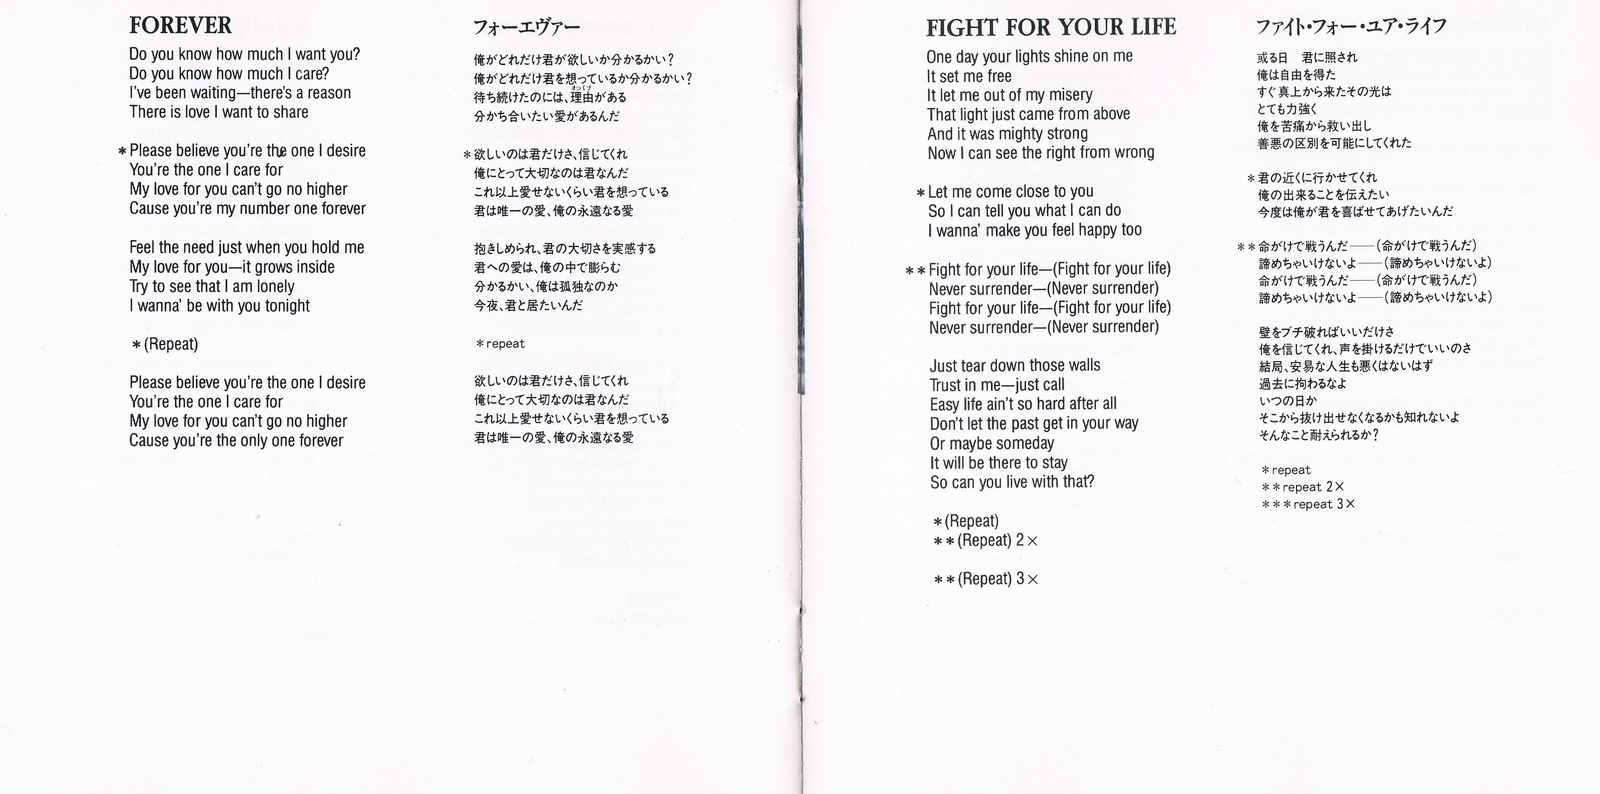 FOREVER
Do you know how much I want you?
Do you know how much I care?
I've been waiting—there's a reason
There is love I want to share
*Please believe you're the one I desire
You're the one I care for
My love for you can't go no higher
Cause you're my number one forever
Feel the need just when you hold me
My love for you—it grows inside
Try to see that I am lonely
I wanna' be with you tonight
*(Repeat)
Please believe you're the one I desire
You're the one I care for
My love for you can't go no higher
Cause you're the only one forever
フォーエヴァー
俺がどれだけ君が欲しいか分かるかい？
俺がどれだけ君を想っているか分かるかい？
待ち続けたのには、理由がある
分かち合いたい愛があるんだ
*欲しいのは君だけさ、信じてくれ
俺にとって大切なのは君なんだ
これ以上愛せないくらい君を想っている
君は唯一の愛、俺の永遠なる愛
抱きしめられ、君の大切さを実感する
君への愛は、俺の中で膨らむ
分かるかい、俺は孤独なのか
今夜、君と居たいんだ
*repeat
欲しいのは君だけさ、信じてくれ
俺にとって大切なのは君なんだ
これ以上愛せないくらい君を想っている
君は唯一の愛、俺の永遠なる愛
FIGHT FOR YOUR LIFE
One day your lights shine on me
It set me free
It let me out of my misery
That light just came from above
And it was mighty strong
Now I can see the right from wrong
*Let me come close to you
So I can tell you what I can do
I wanna' make you feel happy too
**Fight for your life—(Fight for your life)
Never surrender—(Never surrender)
Fight for your life—(Fight for your life)
Never surrender—(Never surrender)
Just tear down those walls
Trust in me—just call
Easy life ain't so hard after all
Don't let the past get in your way
Or maybe someday
It will be there to stay
So can you live with that?
*(Repeat)
**(Repeat) 2×
**(Repeat) 3×
ファイト・フォー・ユア・ライフ
或る日　君に照され
俺は自由を得た
すぐ真上から来たその光は
とても力強く
俺を苦痛から救い出し
善悪の区別を可能にしてくれた
*君の近くに行かせてくれ
俺の出来ることを伝えたい
今度は俺が君を喜ばせてあげたいんだ
**命がけで戦うんだ——(命がけで戦うんだ)
諦めちゃいけないよ——(諦めちゃいけないよ)
命がけで戦うんだ——(命がけで戦うんだ)
諦めちゃいけないよ——(諦めちゃいけないよ)
壁をブチ破ればいいだけさ
俺を信じてくれ、声を掛けるだけでいいのさ
結局、安易な人生も悪くはないはず
過去に拘わるなよ
いつの日か
そこから抜け出せなくなるかも知れないよ
そんなこと耐えられるか？
*repeat
**repeat 2×
***repeat 3×